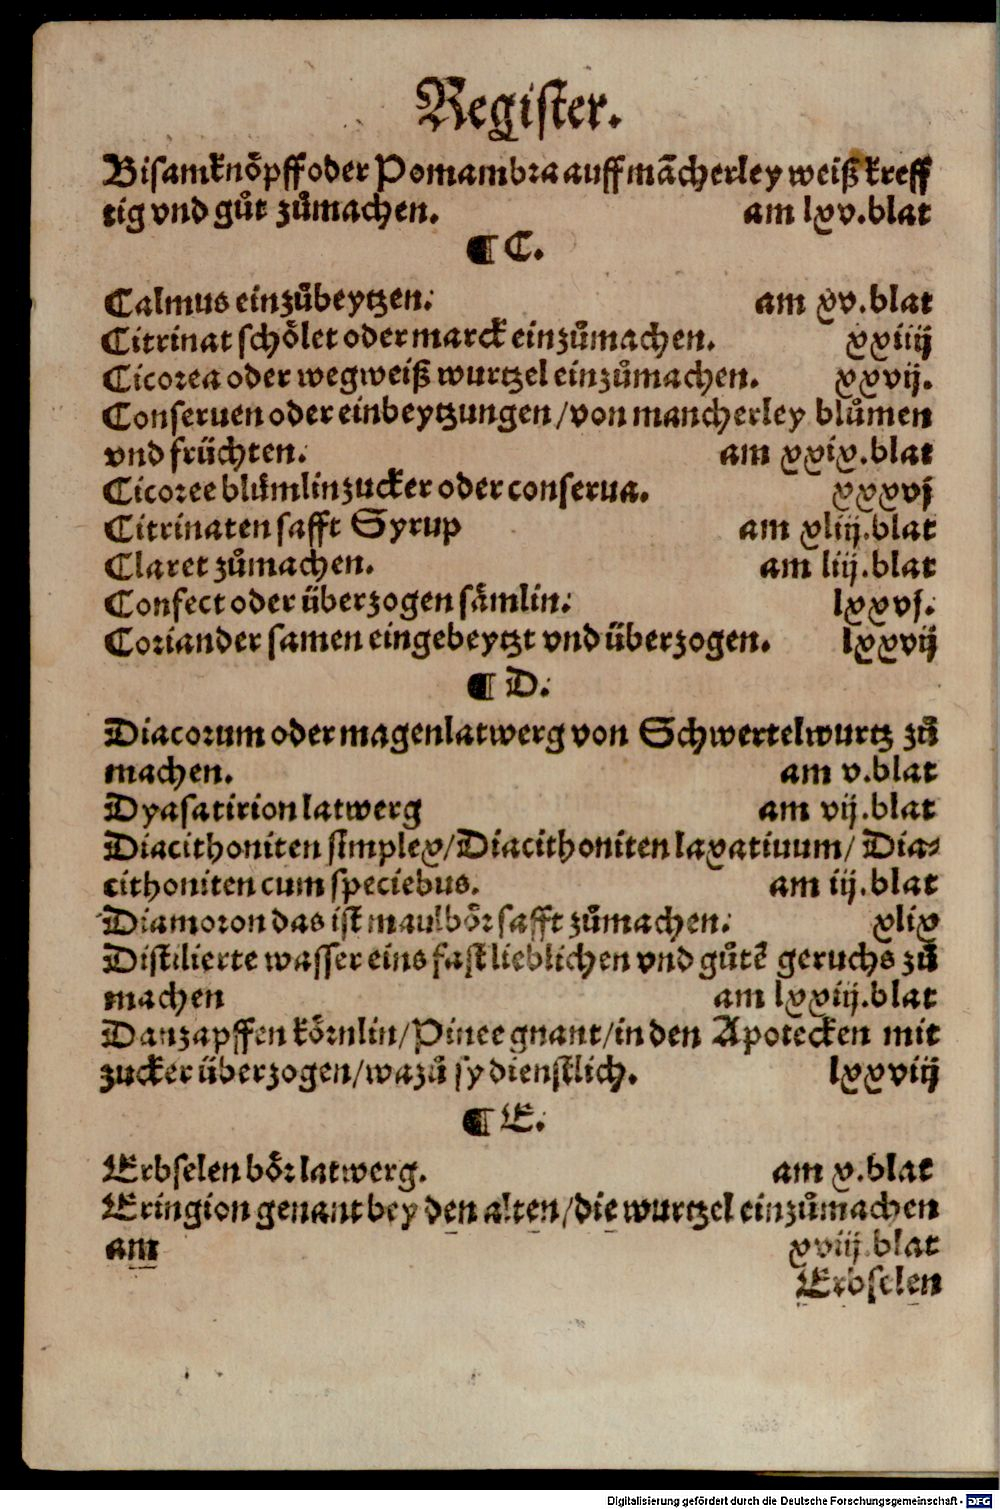 Register.
Bisamknöpff oder Pomambra auff mãcherley weiß kreff
tig vnd gůt zůmachen. am lxv.blat
¶ C.
Calmus einzůbeytzen: am xv.blat
Citrinat schölet oder marck einzůmachen. xxiiij
Cicorea oder wegweiß wurtzel einzůmachen. xxvij.
Conseruen oder einbeytzungen/von mancherley blůmen
vnd früchten: am xxix.blat
Cicoree blůmlinzucker oder conserua. xxxvj
Citrinaten safft Syrup am xliij.blat
Claret zůmachen. am liij.blat
Confect oder überzogen sämlin: lxxvj.
Coriander samen eingebeytzt vnd überzogen. lxxvij
¶ D:
Diacorum oder magenlatwerg von Schwertelwurtz zů
machen. am v.blat
Dyasatirion latwerg am vij.blat
Diacithoniten simplex/Diacithoniten laxatiuum/ Dia⸗
cithoniten cum speciebus. am iij.blat
Diamoron das ist maulbör safft zůmachen: xlix
Distilierte wasser eins fast lieblichen vnd gůtẽ geruchs zů
machen am lxxiij.blat
Danzapffen körnlin/Pinee gnant/in den Apotecken mit
zucker überzogen/wazů sy dienstlich. lxxviij
¶ E:
Erbselen bör latwerg. am x.blat
Eringion genant bey den alten/die wurtzel einzůmachen
am xviij.blat
Erbselen
Digitalisierung gefördert durch die Deutsche Forschungsgemeinschaft - DFG